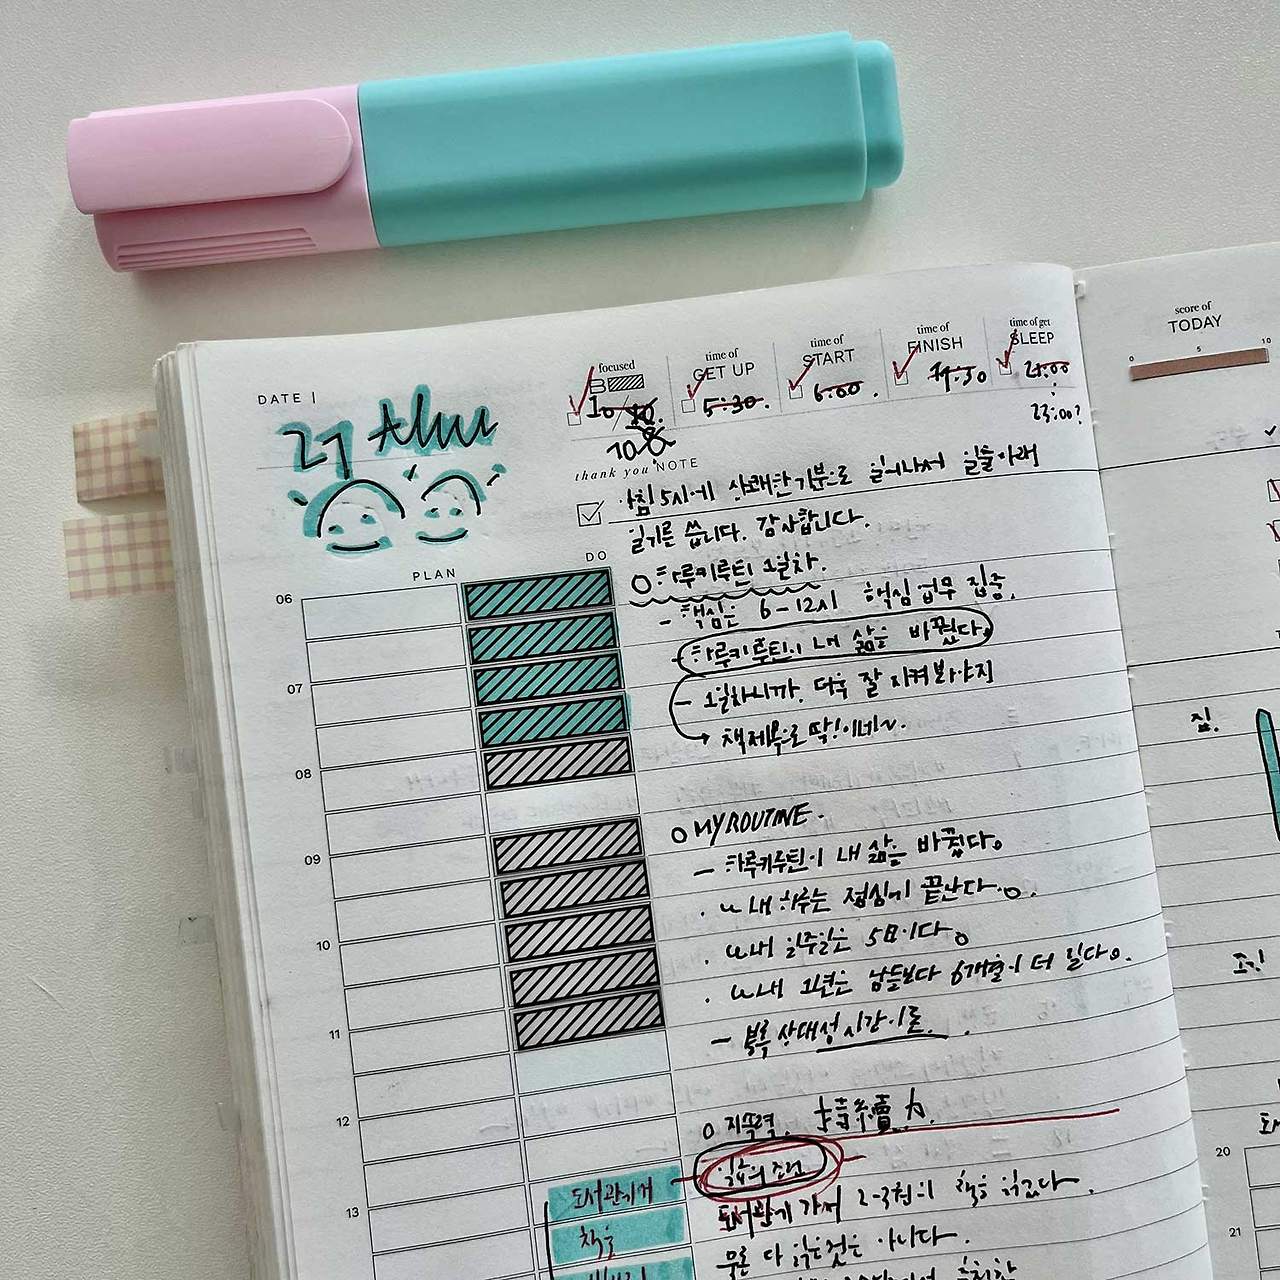 DATE |
focused
time of
GET UP
5:30.
time of
START
6:00.
time of
FINISH
time of get
SLEEP
21:00
23:00?
score of
TODAY
0 5 10
thank you NOTE
아침 5시에 상쾌한 기분로 일어나서 일출아래
일기를 씁니다. 감사합니다.
PLAN
DO
○ 하루키루틴 1일차.
- 핵심은 6-12시 핵심업무 집중.
- 하루키루틴이 내 삶을 바꿨다.
- 1일차니까. 더욱 잘 지켜봐야지
→ 책제목으로 딱!이네~.
○ MY ROUTINE.
- 하루키루틴이 내 삶을 바꿨다.
내 하루는 점심에 끝난다.
내 일주일은 5日이다.
내 1년은 남들보다 6개월이 더 길다.
- 북룩 상대성시간이론.
○ 지속력. 持続力.
도서관에 가서 2-3권의 책을 읽었다.
물론 다 읽은것은 아니다.
06
07
08
09
10
11
12
13
도서관가서
책을
집.
20
21